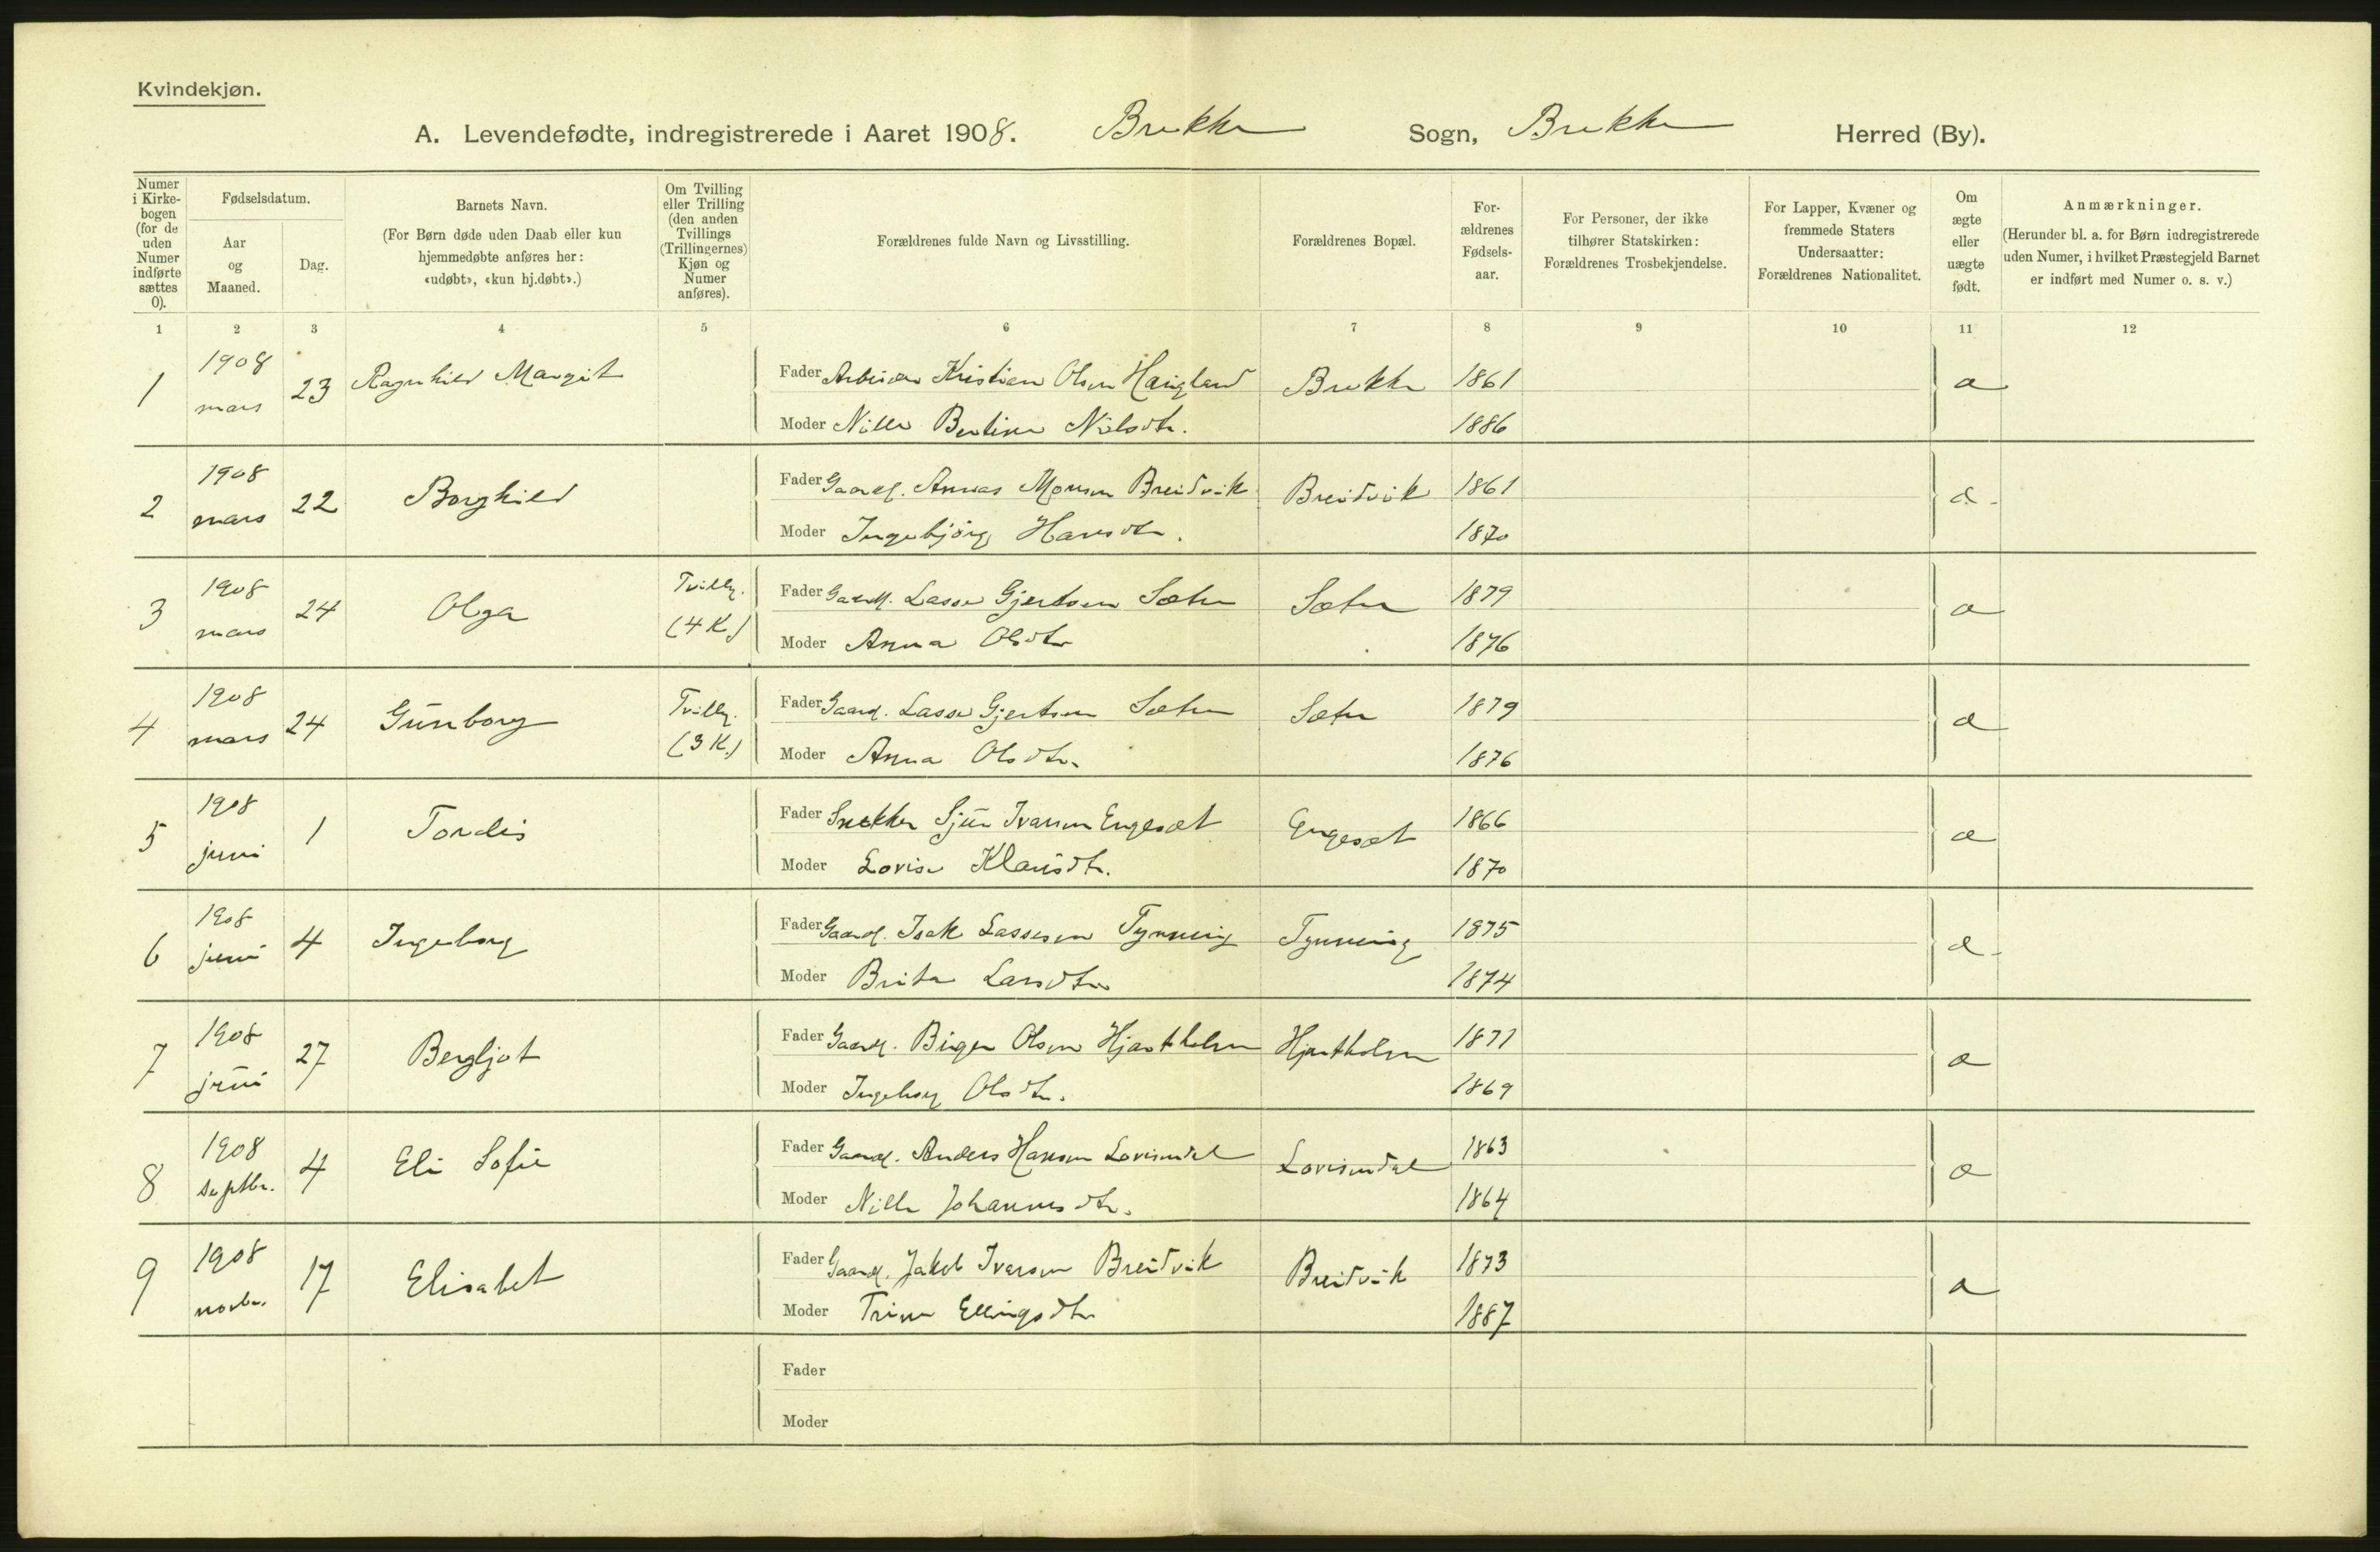 Kvindekjøn.
A. Levendefødte, indregistrerede i Aaret 1908. Brekke Sogn, Brekke Herred (By).
Numer i Kirke-bogen (for de uden Numer indførte sættes 0).
Fødselsdatum.
Aar og Maaned.
Dag.
Barnets Navn.
(For Børn døde uden Daab eller kun hjemmedøbte anføres her: «udøbt», «kun hj.døbt».)
Om Tvilling eller Trilling (den anden Tvillings (Trillingernes) Kjøn og Numer anføres).
Forældrenes fulde Navn og Livsstilling.
Forældrenes Bopæl.
For-ældrenes Fødsels-aar.
For Personer, der ikke tilhører Statskirken: Forældrenes Trosbekjendelse.
For Lapper, Kvæner og fremmede Staters Undersaatter: Forældrenes Nationalitet.
Om ægte eller uægte født.
Anmærkninger.
(Herunder bl. a. for Børn indregistrerede uden Numer, i hvilket Præstegjeld Barnet er indført med Numer o. s. v.)
1 2 3 4 5 6 7 8 9 10 11 12
1 1908 mars 23 Ragnhild Margit Fader Arbeider Kristian Olsen Haugland Brekke 1861 æ
Moder Nille Bertine Nilsdtr. 1886
2 1908 mars 22 Borghild Fader Gaardl. Annas Monsen Breidvik Breidvik 1861 æ
Moder Ingebjörg Hansdtr. 1870
3 1908 mars 24 Olga Tvillg. (4 K) Fader Gaardl. Lasse Gjertsen Sætre Sætre 1879 æ
Moder Anna Olsdtr 1876
4 1908 mars 24 Gunborg Tvillg. (3 K.) Fader Gaardl. Lasse Gjertsen Sætre Sætre 1879 æ
Moder Anna Olsdtr. 1876
5 1908 juni 1 Tordis Fader Snekker Sjur Ivarsen Engesæt Engesæt 1866 æ
Moder Lovise Klausdtr. 1870
6 1908 juni 4 Ingeborg Fader Gaardl. Isak Lassesen Tynning Tynning 1875 æ
Moder Brita Larsdtr 1874
7 1908 juni 27 Bergljot Fader Gaardl. Birger Olsen Hjartholm Hjartholm 1871 æ
Moder Ingeborg Olsdtr. 1869
8 1908 septbr. 4 Eli Sofie Fader Gaardl. Anders Hansen Lovisendal Lovisendal 1863 æ
Moder Nille Johannesdtr. 1864
9 1908 novbr. 17 Elisabet Fader Gaardl. Jakob Ivarsen Breidvik Breidvik 1873 æ
Moder Trine Ellingsdtr 1887
Fader
Moder